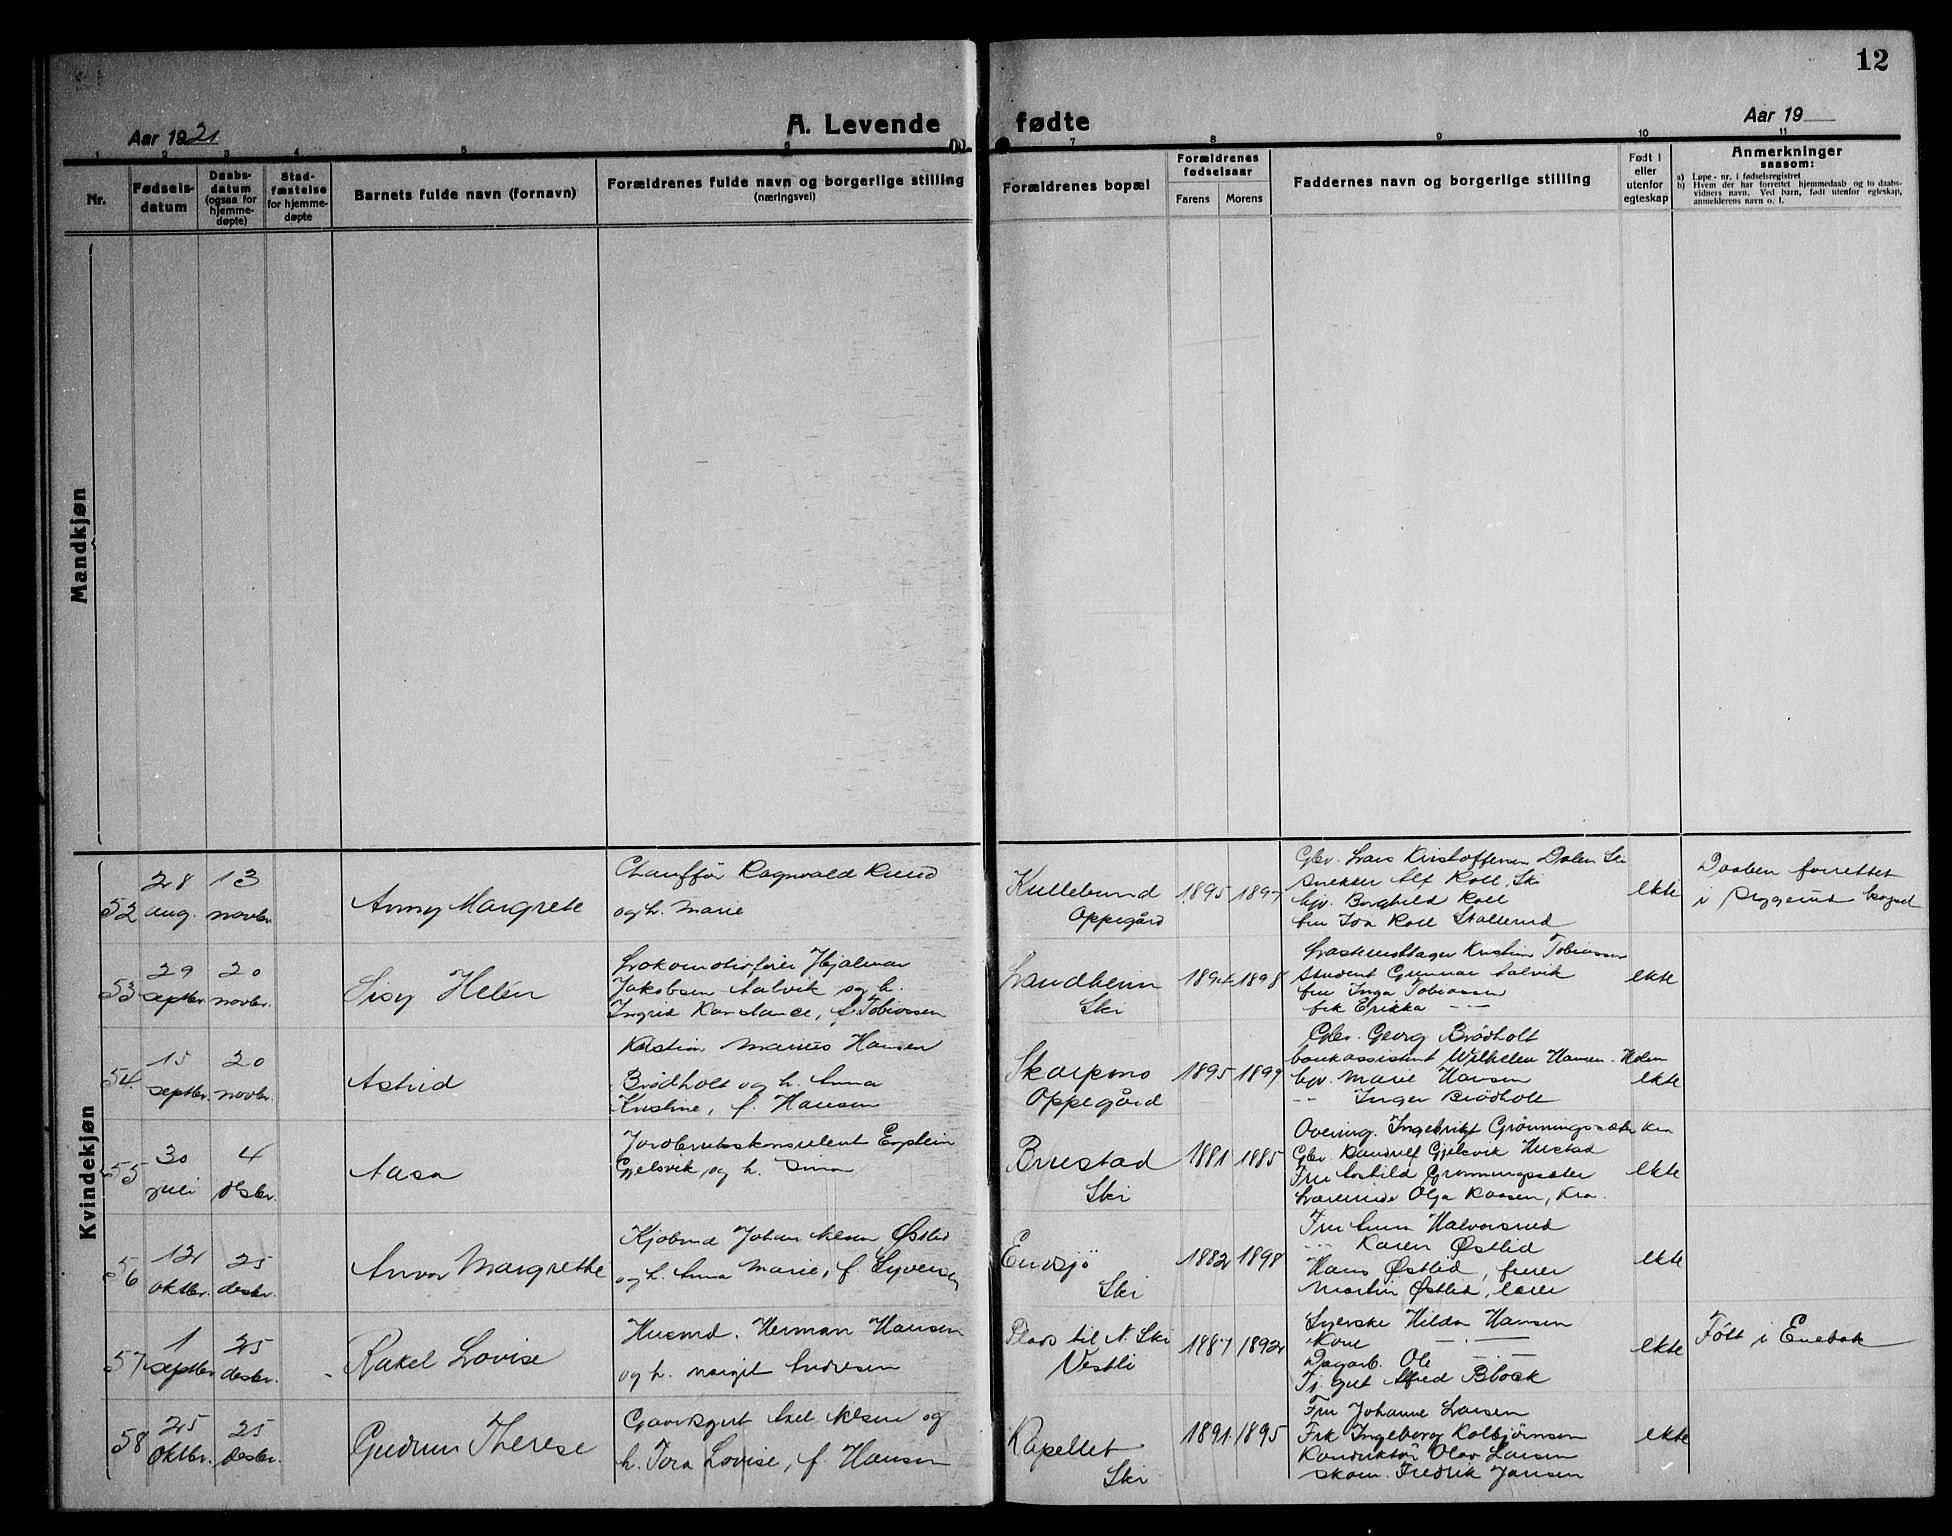 12
Aar 1921
A. Levende fødte
Aar 19
1 2 3 4 5 6 7 8 9 10 11
Nr.
Fødsels-
datum
Daabs-
datum
(ogsaa for
hjemme-
døpte)
Stad-
fæstelse
for hjemme-
døpte
Barnets fulde navn (fornavn)
Forældrenes fulde navn og borgerlige stilling
(næringsvei)
Forældrenes bopæl
Forældrenes
fødselsaar
Farens Morens
Faddernes navn og borgerlige stilling
Født i
eller
utenfor
egteskap
Anmerkninger
saasom:
a) Løpe-nr. i fødselsregistret
b) Hvem der har forrettet hjemmedaab og to daabs-
vidners navn. Ved barn, født utenfor egteskap,
anmelderens navn o. l.
Mandkjøn
Kvindekjøn
52
28
aug.
13
novbr.
Anny Margrete
Chauffør Ragnvald Ruud
og h. Marie
Kullebund
Oppegård
1895 1897
Gbr. Lars Kristoffersen Dalen Ski
Snekker Alf Roll, Ski
Borghild Roll
fru Roll
ekte
Daaben forrettet
i kapel
53
29
septbr.
20
novbr.
Sisy Helén
Lokomotivfører Hjalmar
Jakobsen Aalvik og h.
Ingrid Konstance, f. Tobiassen
Landheim
Ski
1894 1898
Kristian Tobiassen
Student Gunnar Aalvik
fru Inga Tobiassen
frk Erikka — —
ekte
54
15
septbr.
20
novbr.
Astrid
Kristian Marius Hansen
Brødholt og h. Anna
Kristine, f. Hansen
Skarpsno
Oppegård
1895 1899
Gbr. Georg Brødholt
bankassistent Wilhelm Hansen - Holm
Marie Hansen
— Inger Brødholt
ekte
55
30
juli
4
desbr.
Aasa
Jordbrukskonsulent
Gjelsvik og h. Sina
Bruestad
Ski
1881 1885
Overing. Ingebrigt Grønningsæter Kra
Gbr. Gjelsvik
Fru Grønningsæter
Olga Raasen, Kra.
ekte
56
12
oktbr.
25
desbr.
Anna Margrethe
Kjøbmd Johan Østlid
og h. Anna Marie, f. Syversen
Endsjø
Ski
1882 1898
Fru Anna Halvorsrud
— Karen Østlid
Hans Østlid,
Martin Østlid,
ekte
57
1
septbr.
25
desbr.
Rakel Lovise
Husmd. Herman Hansen
og h. Margit Andresen
Plads til N. Ski
Vestli
1887 1892
Syerske Hilda Hansen
Kone — —
Dagarb. Ole — —
Tj. gut Alfred Block
ekte
Født i Enebak
58
25
oktbr.
25
desbr.
Gudrun Therese
Axel og
h. Tora Lovise, f. Hansen
Kapellet
Ski
1891 1895
Fru Johanne Larsen
Frk Ingeborg Kolbjørnsen
Konduktør Olav Larsen
Skom. Fredrik Jansen
ekte